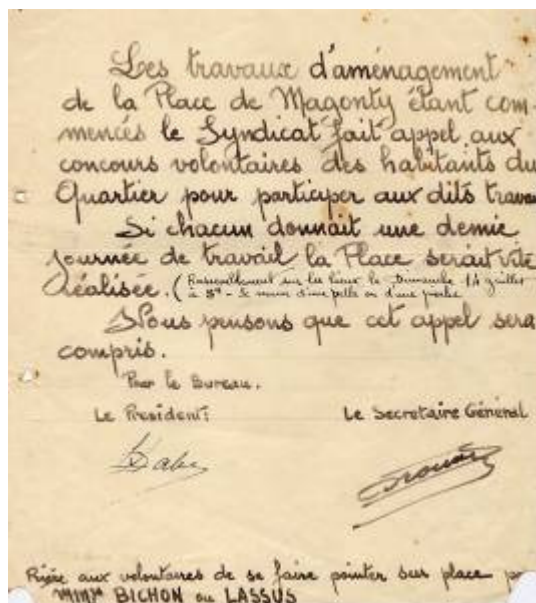 Les travaux d'aménagement
de la Place de Magonty étant com-
mencés le Syndicat fait appel aux
concours volontaires des habitants du
Quartier pour participer aux dits travau
Si chacun donnait une demie
journée de travail la Place serait vite
réalisée. (Rassemblement sur les lieux le Dimanche 14 juillet
à 8h - Se munir d'une pelle ou d'une pioche
Nous pensons que cet appel sera
compris.
Pour le Bureau.
Le President: Le Secretaire Général
Prière aux volontaires de se faire pointer sur place p
MMrs BICHON ou LASSUS